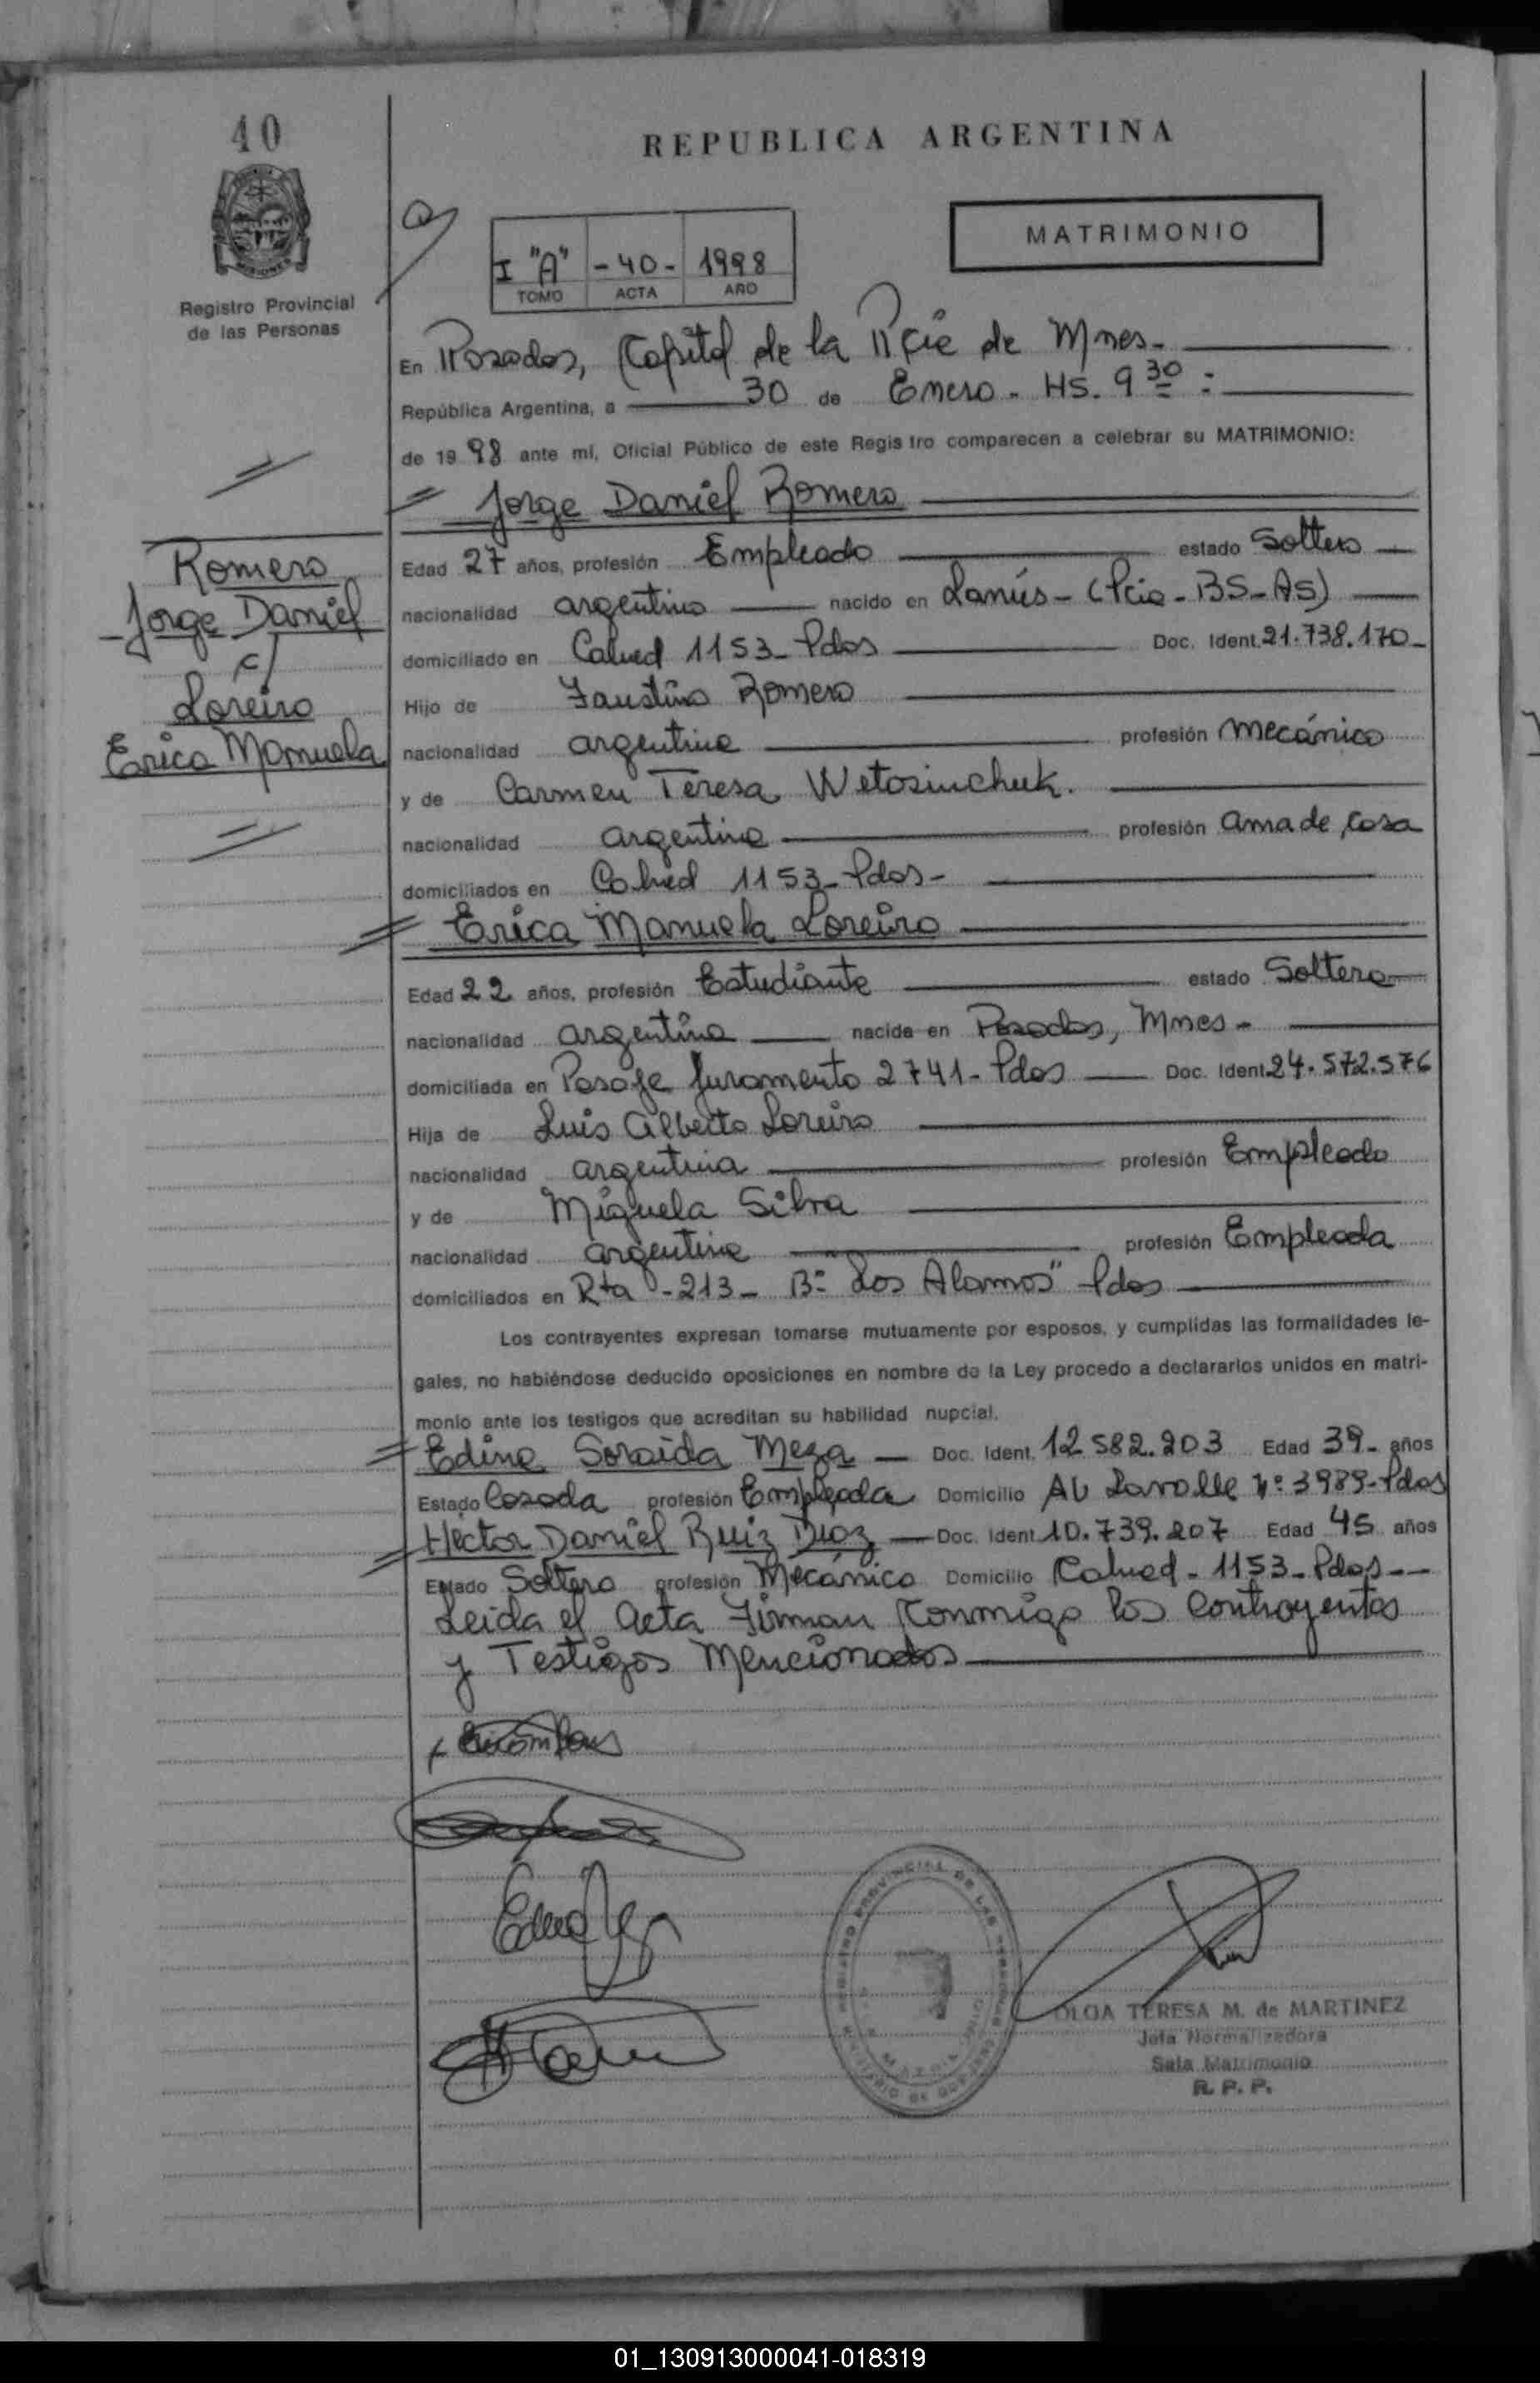 40
REPUBLICA ARGENTINA
MATRIMONIO
I "A" -40- 1998
TOMO ACTA AÑO
Registro Provincial
de las Personas
En Posadas, Capital de la Pcie de Mnes-
República Argentina, a 30 de Enero - HS. 9 30 :
de 19 98 ante mí, Oficial Público de este Regis tro comparecen a celebrar su MATRIMONIO:
Jorge Daniel Romero
Romero
Jorge Daniel
c/
Loreiro
Erica Manuela
Edad 27 años, profesión Empleado estado Soltero
nacionalidad argentino nacido en Lanús - (Pcia - BS-AS)
domiciliado en 1153- Pdas Doc. Ident. 21.738.170-
Hijo de Faustino Romero
nacionalidad argentina profesión Mecánico
y de Carmen Teresa Wetosinchuk.
nacionalidad argentina profesión ama de casa
domiciliados en 1153- Pdas-
Erica Manuela Loreiro
Edad 22 años, profesión Estudiante estado Soltera
nacionalidad argentina nacida en Posadas, Mnes-
domiciliada en Pasaje Juramento 2741- Pdas Doc. Ident. 24.572.576
Hija de Luis Alberto Loreiro
nacionalidad argentina profesión Empleado
y de Miguela Silva
nacionalidad argentina profesión Empleada
domiciliados en Rta -213- Bº "Los Alamos" Pdas
Los contrayentes expresan tomarse mutuamente por esposos, y cumplidas las formalidades le-
gales, no habiéndose deducido oposiciones en nombre de la Ley procedo a declararlos unidos en matri-
monio ante los testigos que acreditan su habilidad nupcial.
Edina Soraida Meza Doc. Ident. 12 582.203 Edad 39- años
Estado Casada profesión Empleada Domicilio AV Lavalle Nº 3989-Pdas
Hector Daniel Ruiz Diaz Doc. Ident. 10.739.207 Edad 45 años
Estado Soltero profesión Mecánico Domicilio 1153-Pdas--
Leida el Acta Firman Conmigo los Contrayentes
y Testigos Mencionados
OLGA TERESA M. de MARTINEZ
Jefa Normalizadora
Sala Matrimonio
R. P. P.
01_130913000041-018319